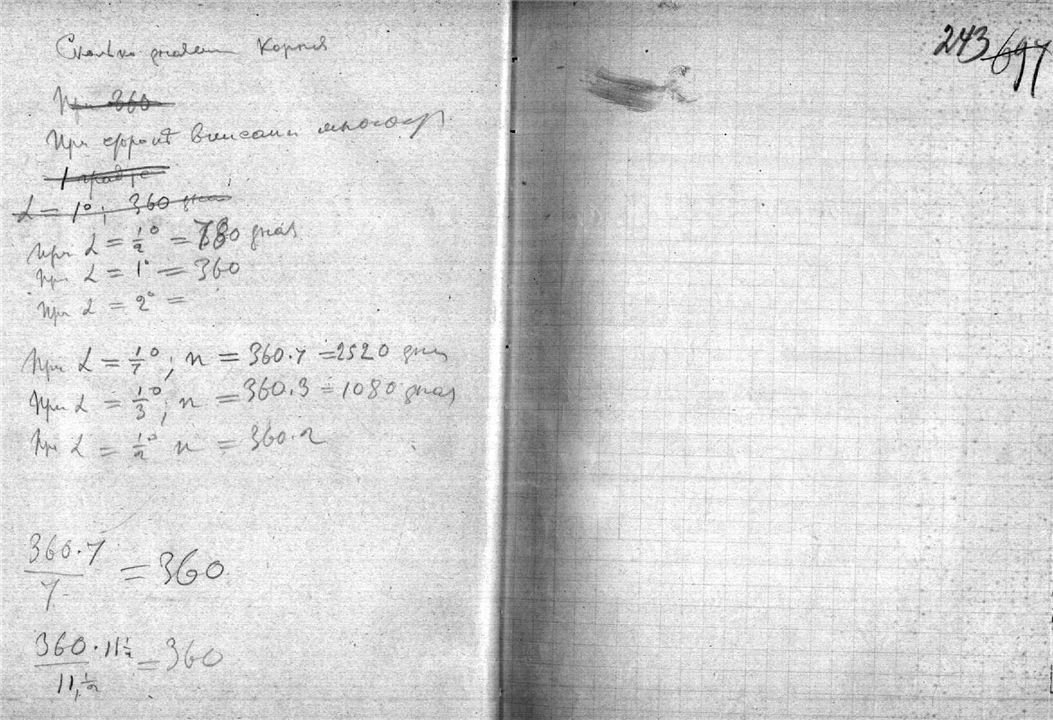 Сколько делает Корней
При 360
При фронт вписан многоуг
1 градус
α = 1°; 360 дней
при α = 1/2° = 780 дней
при α = 1° = 360
при α = 2° =
при α = 1/7°; n = 360·7 = 2520
при α = 1/3°; n = 360·3 = 1080
при α = 1/2° n = 360·2
360·7/7 = 360
360·11 1/2 / 11,1/2 = 360
243 697